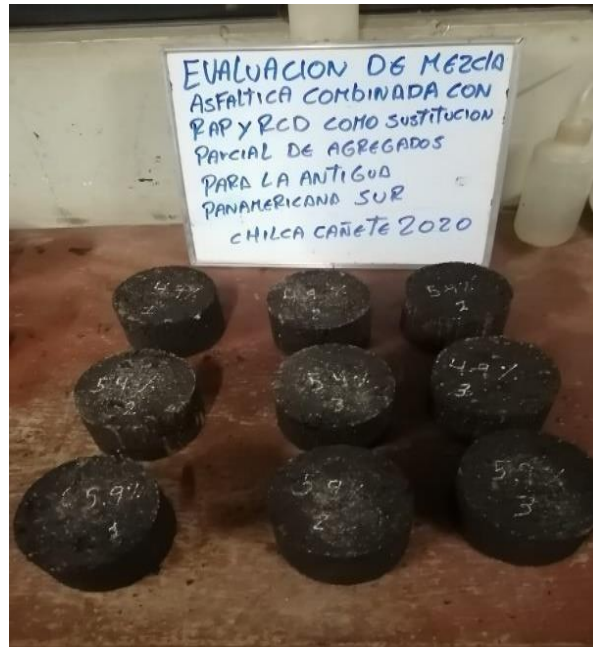 EVALUACION DE MEZCLA
ASFALTICA COMBINADA CON
RAP Y RCD COMO SUSTITUCION
PARCIAL DE AGREGADOS
PARA LA ANTIGUA
PANAMERICANA SUR
CHILCA CAÑETE 2020
4.9%
4.9%
2
5.4%
5.4%
2
5.4%
3
4.9%
3
5.9%
1
5.9
2
5.9%
3